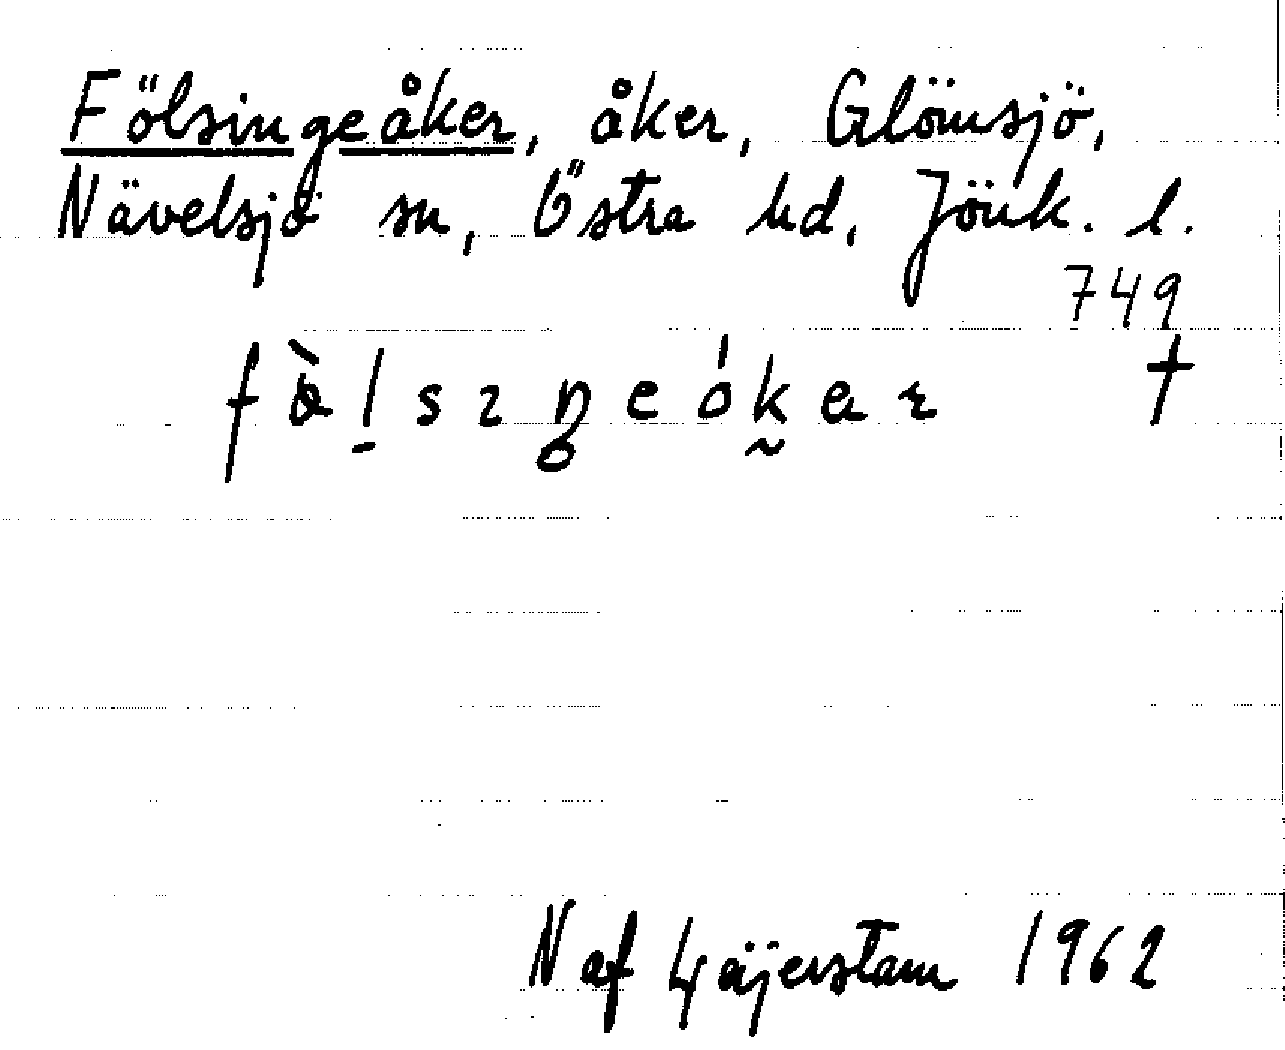 Fölsingeåker, åker, Glömsjö,
Nävelsjö sn, Östra hd, Jönk. l.
749
†
N af Gäjerstam 1962